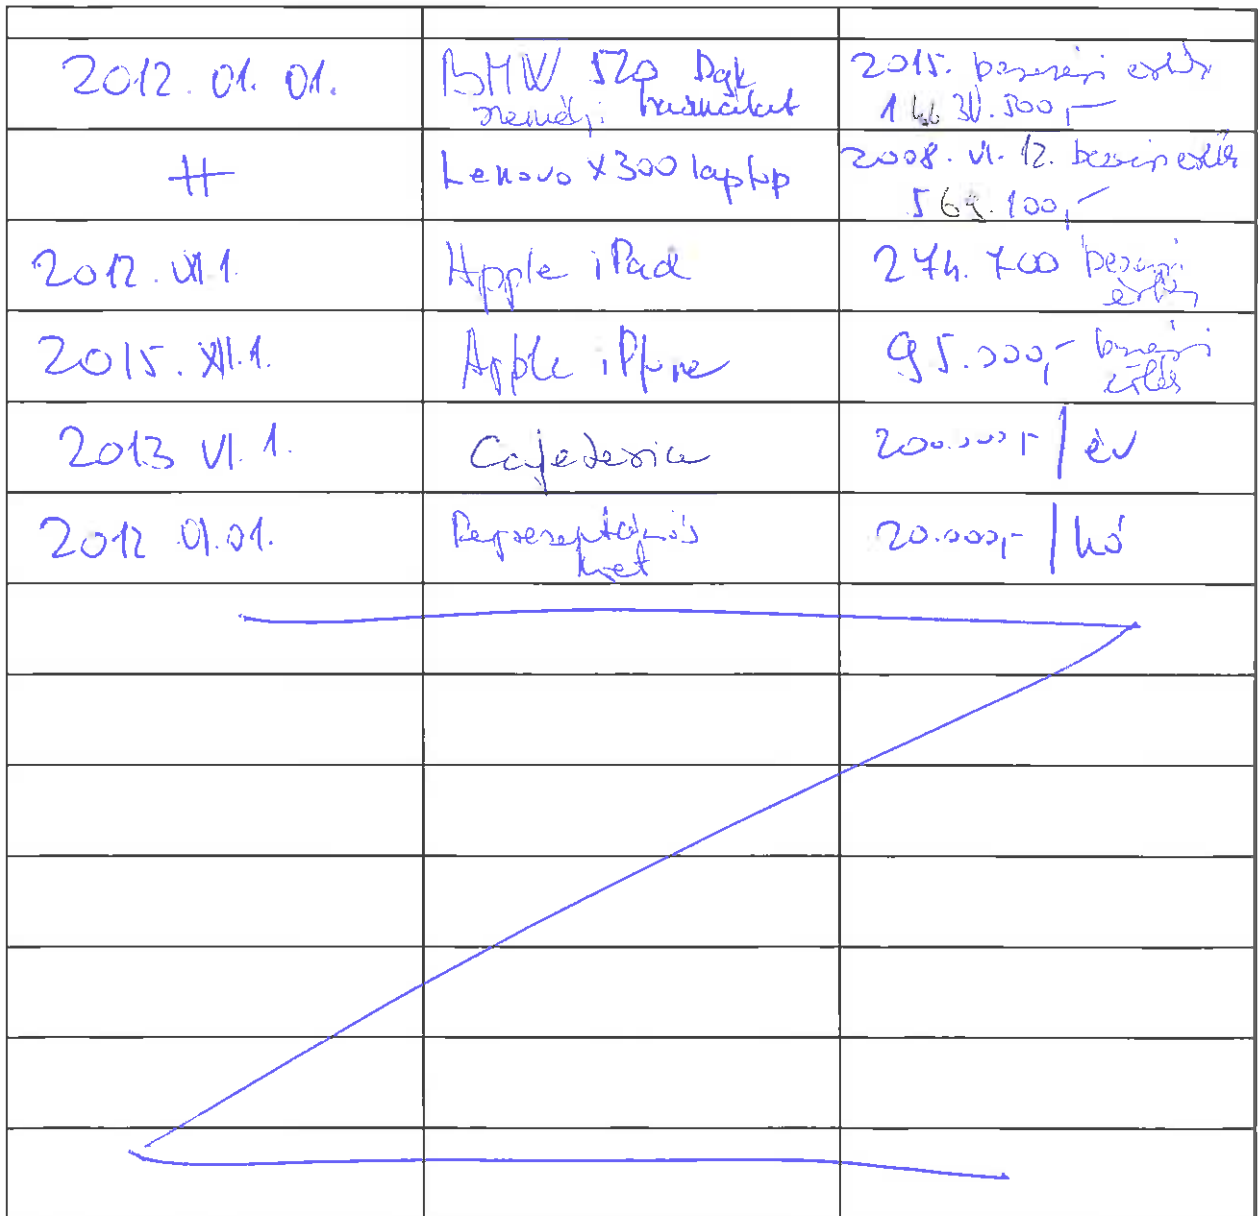 2012. 01. 01.
BMW 520 személyi használat
2015. beszerzési értés
500,-
Lenovo X300 laptop
2008. VI. 12. beszerzési értés
569.100,-
2012. 1.
Apple iPad
274.700 beszerzési
értés
2015. XII. 1.
Apple iPhone
95.000,- beszerzési
értés
2013 VI. 1.
Cafeteria
200.000,- / év
2012 01.01.
Reprezentációs
keret
20.000,- / hó